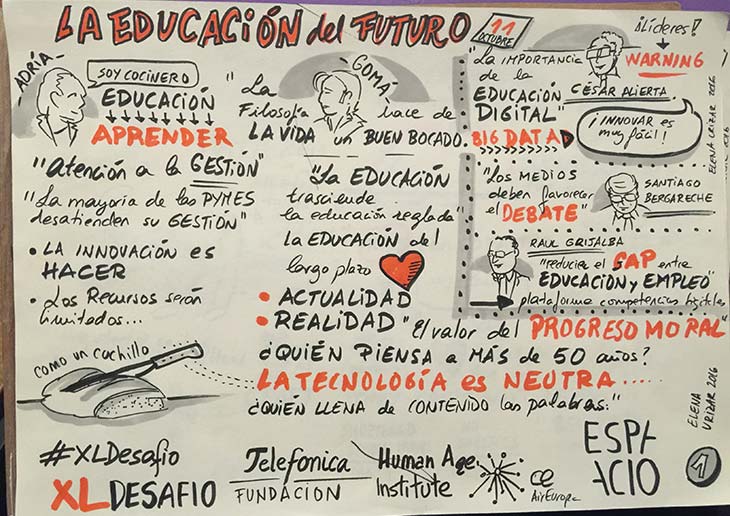 LA EDUCACIÓN del FUTURO
11
OCTUBRE
ADRIÀ
SOY COCINERO
EDUCACIÓN
APRENDER
"Atención a la GESTIÓN"
"La mayoría de las PYMES
desatienden su GESTIÓN"
• LA INNOVACIÓN es
HACER
• Los Recursos serán
limitados...
como un cuchillo
GOMÁ
"La
Filosofía hace de
LA VIDA un BUEN BOCADO.
"La EDUCACIÓN
trasciende
la educación reglada"
La EDUCACIÓN del
largo plazo
• ACTUALIDAD
• REALIDAD "El valor del PROGRESO MORAL"
¿QUIÉN PIENSA a MÁS de 50 años?
LA TECNOLOGÍA es NEUTRA.....
¿QUIÉN LLENA de CONTENIDO las palabras."
"La IMPORTANCIA
de la
EDUCACIÓN
DIGITAL"
BIG DATA
CÉSAR ALIERTA
¡Líderes!
WARNING
¡INNOVAR es
muy fácil!
"Los MEDIOS
deben favorecer
el DEBATE"
SANTIAGO
BERGARECHE
RAUL GRIJALBA
"reducir el GAP entre
EDUCACIÓN y EMPLEO"
plataforma competencias digitales
ELENA URIZAR 2016
ELENA
URIZAR 2016
#XLDesafio
XLDESAFIO
Telefonica
FUNDACIÓN
Human Age
Institute
ce
AirEuropa
ESPA
ACIO
1